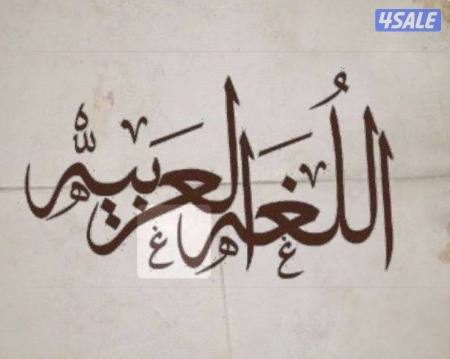 4SALE
اللُغه العربيه